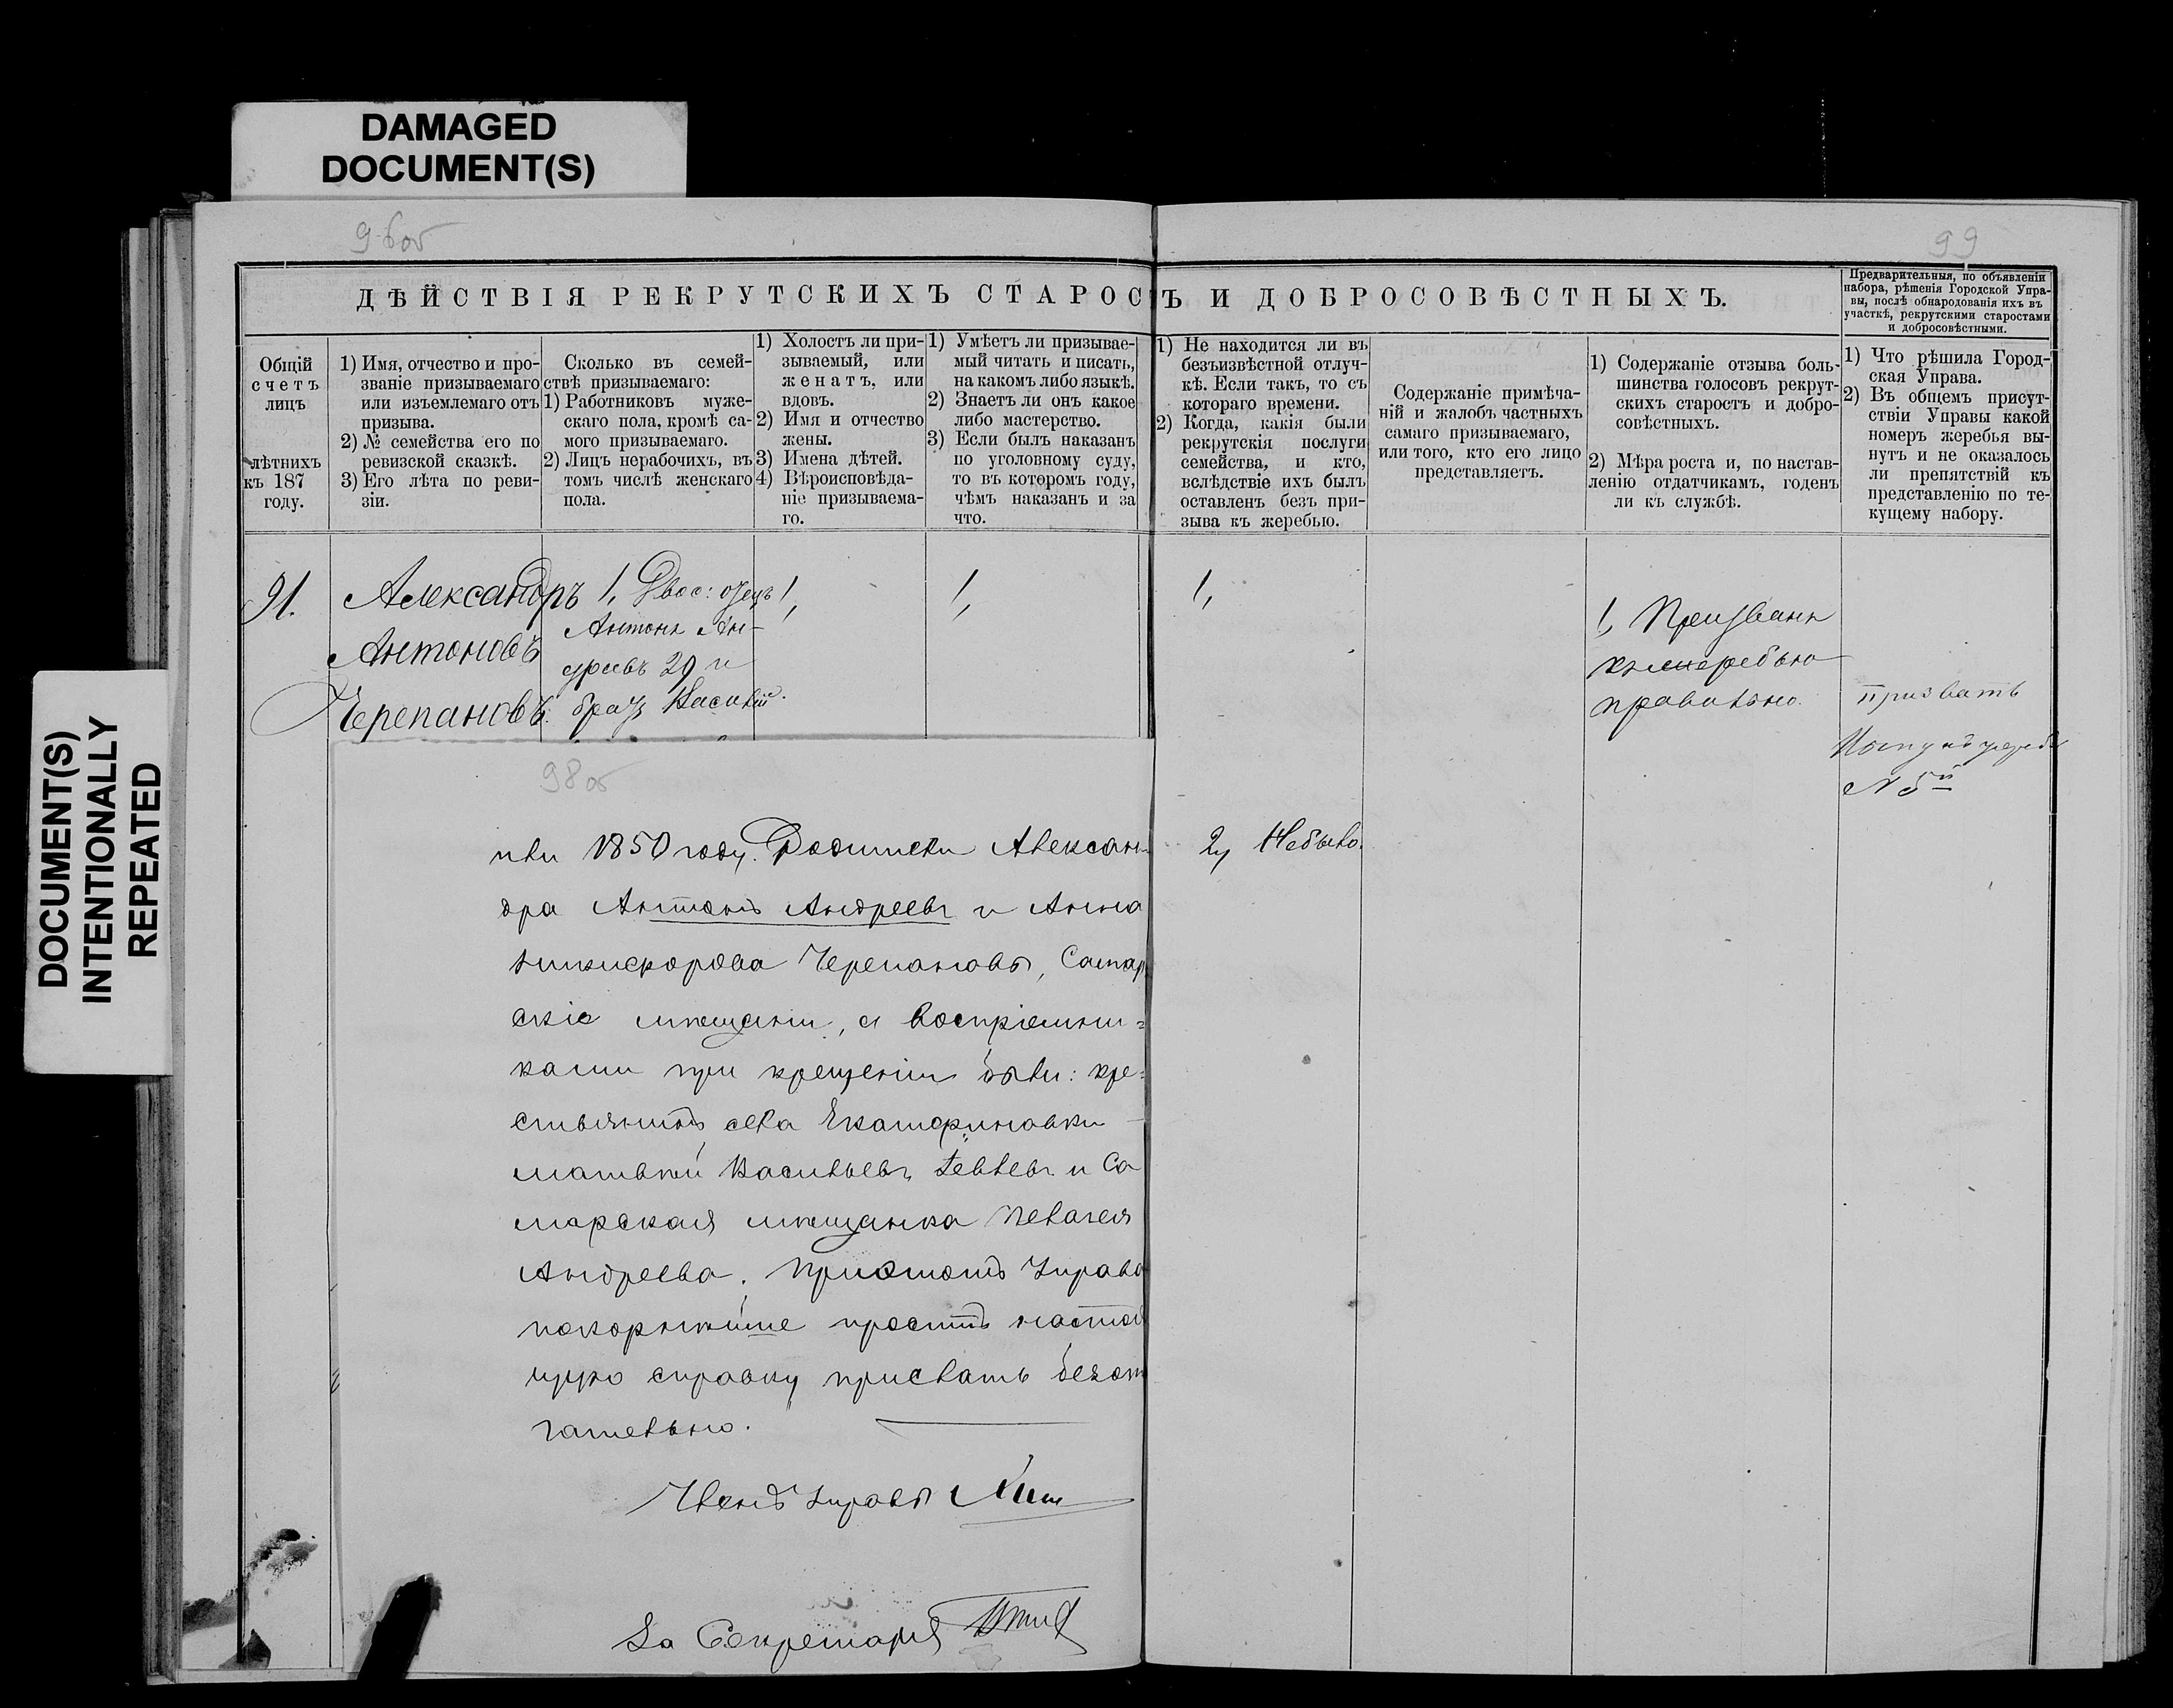 DAMAGED
DOCUMENT(S)
DOCUMENT(S)
INTENTIONALLY
REPEATED
96об
99
ДѢЙСТВІЯ РЕКРУТСКИХЪ СТАРОСТЪ И ДОБРОСОВѢСТНЫХЪ.
Предварительныя, по объявленіи
набора, рѣшенія Городской Упра-
вы, послѣ обнародованія ихъ въ
участкѣ, рекрутскими старостами
и добросовѣстными.
Общій
счетъ
лицъ
лѣтнихъ
къ 187
году.
1) Имя, отчество и про-
званіе призываемаго
или изъемлемаго отъ
призыва.
2) № семейства его по
ревизской сказкѣ.
3) Его лѣта по реви-
зіи.
Сколько въ семей-
ствѣ призываемаго:
1) Работниковъ муже-
скаго пола, кромѣ са-
мого призываемаго.
2) Лицъ нерабочихъ, въ
томъ числѣ женскаго
пола.
1) Холостъ ли при-
зываемый, или
женатъ, или
вдовъ.
2) Имя и отчество
жены.
3) Имена дѣтей.
4) Вѣроисповѣда-
ніе призываема-
го.
1) Умѣетъ ли призывае-
мый читать и писать,
на какомъ либо языкѣ.
2) Знаетъ ли онъ какое
либо мастерство.
3) Если былъ наказанъ
по уголовному суду,
то въ которомъ году,
чѣмъ наказанъ и за
что.
1) Не находится ли въ
безъизвѣстной отлуч-
кѣ. Если такъ, то съ
котораго времени.
2) Когда, какія были
рекрутскія послуги
семейства, и кто,
вслѣдствіе ихъ былъ
оставленъ безъ при-
зыва къ жеребью.
Содержаніе примѣча-
ній и жалобъ частныхъ
самаго призываемаго,
или того, кто его лицо
представляетъ.
1) Содержаніе отзыва боль-
шинства голосовъ рекрут-
скихъ старостъ и добро-
совѣстныхъ.
2) Мѣра роста и, по настав-
ленію отдатчикамъ, годенъ
ли къ службѣ.
1) Что рѣшила Город-
ская Управа.
2) Въ общемъ присут-
ствіи Управы какой
номеръ жеребья вы-
нутъ и не оказалось
ли препятствій къ
представленію по те-
кущему набору.
91.
Александръ
Антоновъ
Черепановъ.
1, Двое: отецъ
Антонъ Ан-
дреевъ 29 и
братъ Василій.
1,
1,
1,
2, Небыло.
1, Призванъ
къ жеребью
правильно.
призвать
№ 5й
98об
1850 году. Родители Алексан-
дра Антонъ Андреевъ и Анна
Никифорова Черепановы, Самар
скіе мѣщани, а воспріемни=
ками при крещеніи были: кре=
стьянинъ села Екатериновки
Матвѣй Васильевъ и Са
марская мѣщанка Пелагея
Андреева. Управа
покорнѣйше проситъ настоя
щую справку прислать безот
гательно.
Членъ Управы
За Секретаря